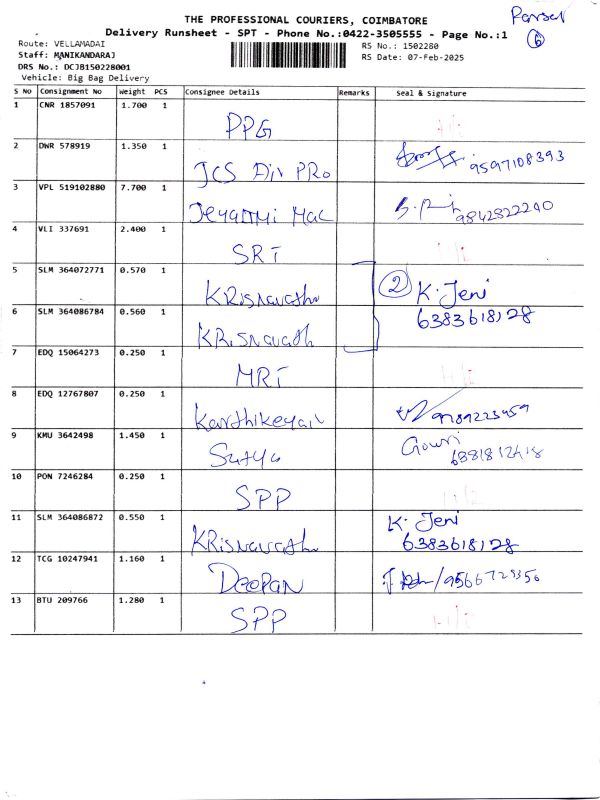 THE PROFESSIONAL COURIERS, COIMBATORE
Parsal
6
Delivery Runsheet - SPT - Phone No.:0422-3505555 - Page No.:1
Route: VELLAMADAI
RS No.: 1502280
Staff: MANIKANDARAJ
RS Date: 07-Feb-2025
DRS No.: DCJB150228001
Vehicle: Big Bag Delivery
S No Consignment No Weight PCS Consignee Details Remarks Seal & Signature
1 CNR 1857091 1.700 1
PPG
2 DWR 578919 1.350 1
JCS Air PRo 9597108393
3 VPL 519102880 7.700 1
Jeyanthi Mac 9842822240
4 VLI 337691 2.400 1
SRT
5 SLM 364072771 0.570 1
KRisnavatha 2 K. Jeni
6 SLM 364086784 0.560 1 6383618128
KRisnavath
7 EDQ 15064273 0.250 1
MRT
8 EDQ 12767807 0.250 1
Karthikeyan
9 KMU 3642498 1.450 1 Gowri
Satya
10 PON 7246284 0.250 1
SPP
11 SLM 364086872 0.550 1 K. Jeni
KRisnavatha 6383618128
12 TCG 10247941 1.160 1
DEEPAN
13 BTU 209766 1.280 1
SPP